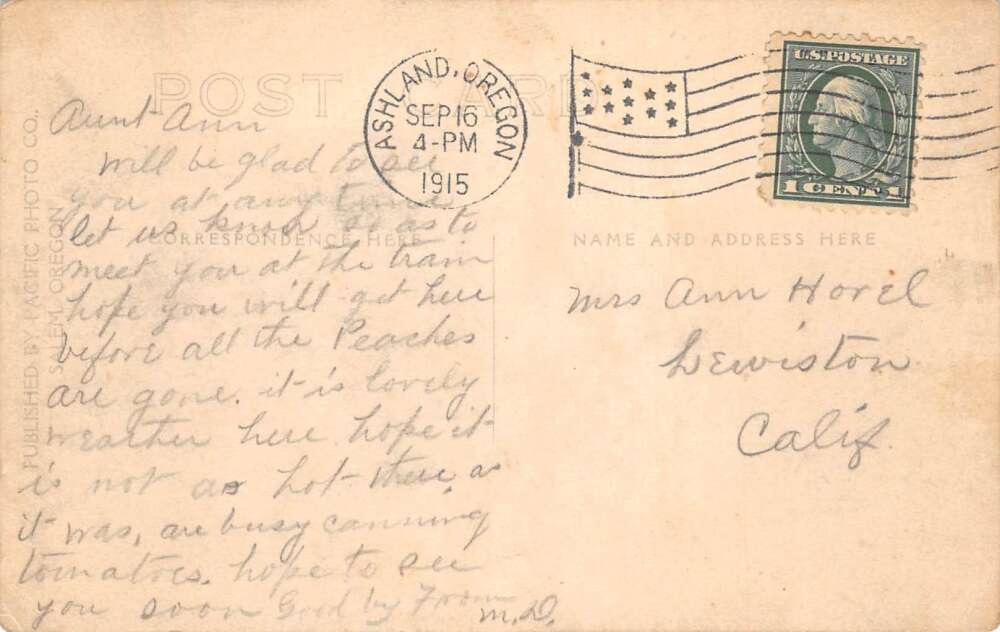 POST CARD
ASHLAND, OREGON
SEP 16
4-PM
1915
U.S. POSTAGE
1 CENT 1
PUBLISHED BY PACIFIC PHOTO CO.,
SALEM, OREGON
CORRESPONDENCE HERE
NAME AND ADDRESS HERE
Aunt Ann
Will be glad to see
you at any time
let us know so as to
meet you at the train
hope you will get here
before all the Peaches
are gone. it is lovely
wearther here hope it
is not as hot there as
it was, are busy canning
tomatoes. hope to see
you soon Good by From
M.D.
Mrs Ann Hovel
Lewiston
Calif.